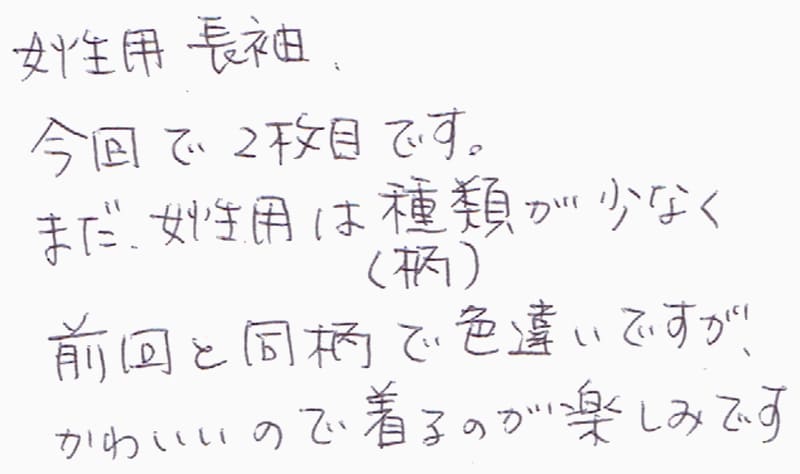 女性用 長袖.
今回で2枚目です。
まだ、女性用は種類が少なく
(柄)
前回と同柄で色違いですが、
かわいいので着るのが楽しみです